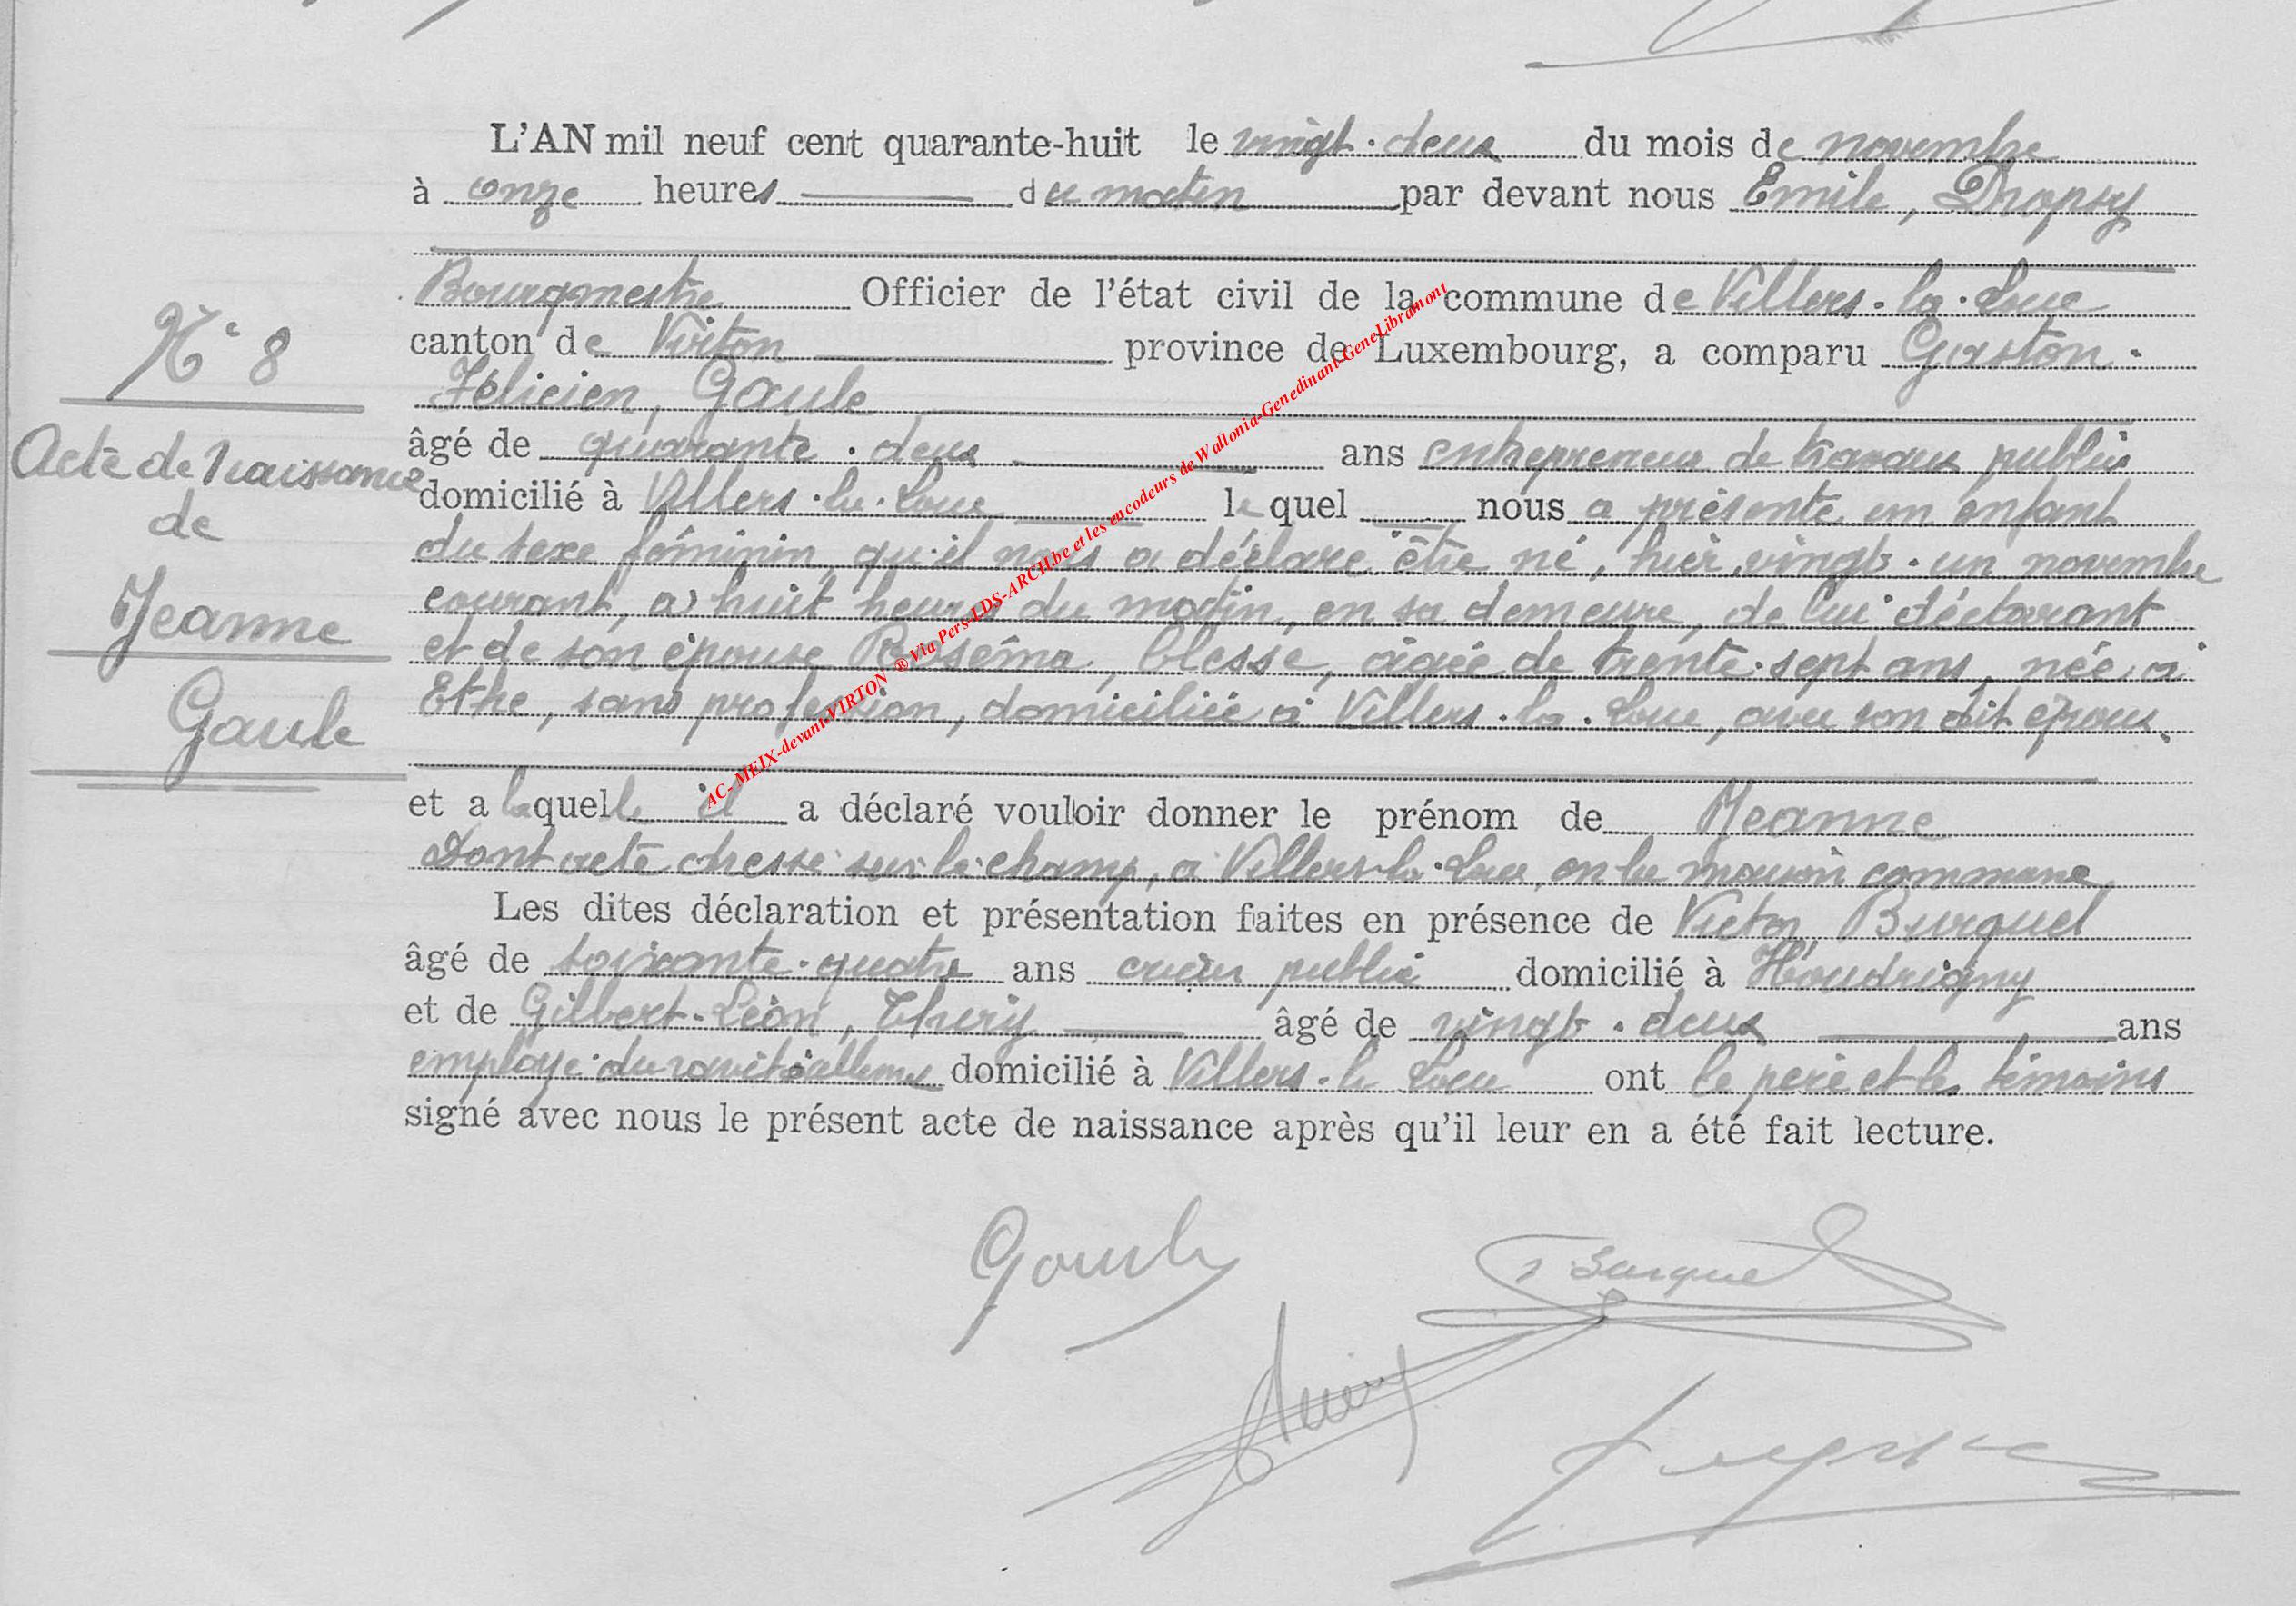 L'AN mil neuf cent quarante-huit le vingt-deux du mois de novembre
à onze heures du matin par devant nous Emile, Dropsy
Bourgmestre Officier de l'état civil de la commune de Villers-la-Loue
canton de Virton province de Luxembourg, a comparu Gaston-
Félicien, Gaule
âgé de quarante-deux ans entrepreneur de travaux publics
domicilié à Villers-la-Loue le quel nous a présenté un enfant
du sexe féminin, qu'il nous a déclaré être né, hier, vingt-un novembre
courant, à huit heures du matin, en sa demeure, de lui déclarant
et de son épouse Roséma, Clesse, âgée de trente-sept ans, née à
Ethe, sans profession, domiciliée à Villers-la-Loue, avec son dit époux.
et a laquelle il a déclaré vouloir donner le prénom de Jeanne
Dont acte dressé sur le champ, à Villers-la-Loue, en la maison commune
Les dites déclaration et présentation faites en présence de Victor Burquel
âgé de soixante-quatre ans crieur public domicilié à Houdrigny
et de Gilbert-Léon, Thiry âgé de vingt-deux ans
employé du ravitaillement domicilié à Villers-la-Loue ont le père et les témoins
signé avec nous le présent acte de naissance après qu'il leur en a été fait lecture.
N° 8
Acte de Naissance
de
Jeanne
Gaule
Gaule
Burquel
Thiry
AC-MEIX-devant-VIRTON ® Via Pers-LDS-ARCH.be et les encodeurs de Wallonia-Genedinant-GeneLibramont